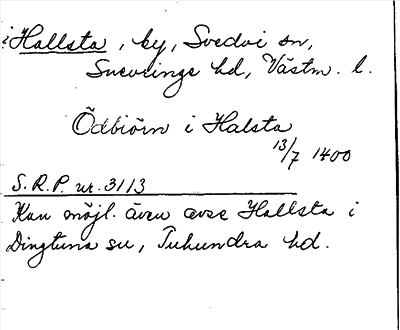 i Hallsta, by, Svedvi sn,
Snevringe hd, Västm. l.
Ödbiörn i Halsta
13/7 1400
S.R.P. nr. 3113
Kan möjl. även avse Hallsta i
Dingtuna sn, Tuhundra hd.